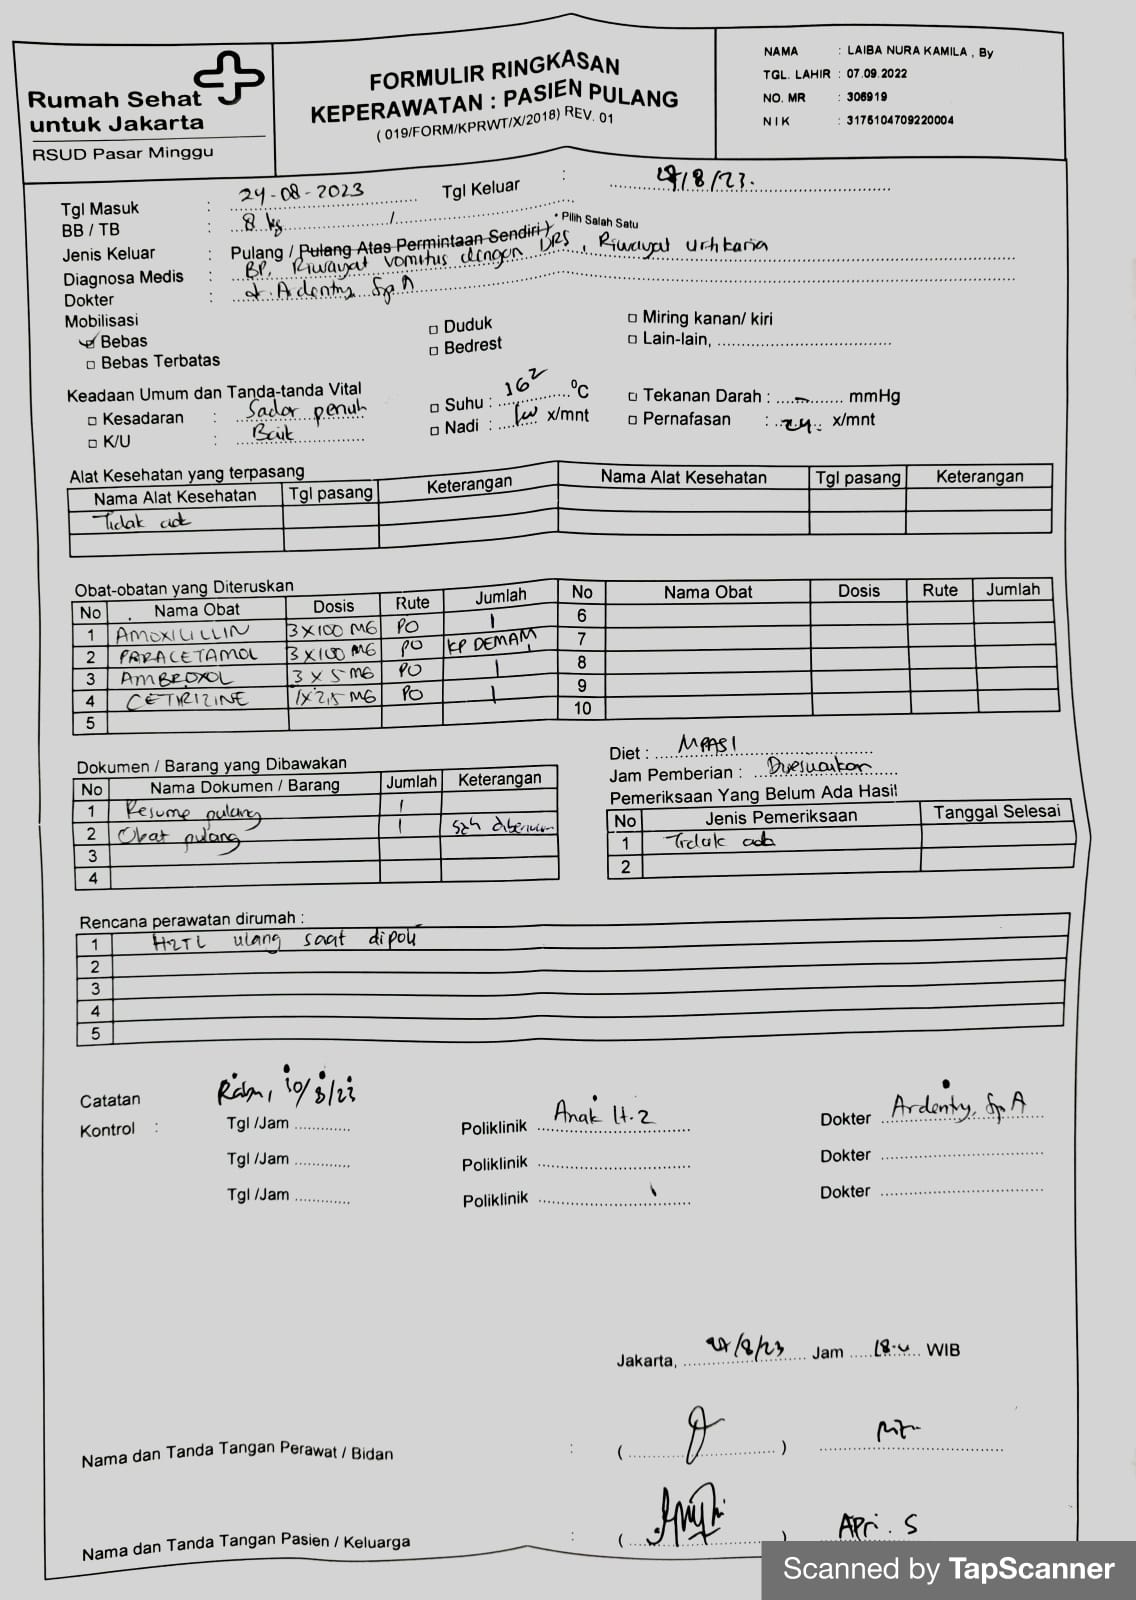 Rumah Sehat
untuk Jakarta
RSUD Pasar Minggu
FORMULIR RINGKASAN
KEPERAWATAN : PASIEN PULANG
( 019/FORM/KPRWT/X/2018) REV. 01
NAMA : LAIBA NURA KAMILA , By
TGL. LAHIR : 07.09.2022
NO. MR : 306919
N I K : 3175104709220004
Tgl Masuk : 24-08-2023 Tgl Keluar : /8/23.
BB / TB : 8 kg /
Jenis Keluar : Pulang / Pulang Atas Permintaan Sendiri ) * Pilih Salah Satu
Diagnosa Medis : BP, Riwayat vomitus dengan DRS, Riwayat urtikaria
Dokter : dr. Ardenty, Sp.A
Mobilisasi
Bebas Duduk Miring kanan/ kiri
Bebas Terbatas Bedrest Lain-lain,
Keadaan Umum dan Tanda-tanda Vital
Kesadaran : Sadar penuh Suhu : 36² ⁰C Tekanan Darah : - mmHg
K/U : Baik Nadi : x/mnt Pernafasan : 24 x/mnt
Alat Kesehatan yang terpasang
Nama Alat Kesehatan Tgl pasang Keterangan Nama Alat Kesehatan Tgl pasang Keterangan
Tidak ada
Obat-obatan yang Diteruskan
No Nama Obat Dosis Rute Jumlah No Nama Obat Dosis Rute Jumlah
1 AMOXICILLIN 3 X 100 MG PO 1 6
2 PARACETAMOL 3 X 100 MG PO KP DEMAM 7
3 AMBROXOL 3 X 5 MG PO 1 8
4 CETIRIZINE 1X 2,5 MG PO 1 9
5 10
Dokumen / Barang yang Dibawakan
No Nama Dokumen / Barang Jumlah Keterangan
1 Resume pulang 1
2 Obat pulang 1 sdh diberikan
3
4
Diet : MPASI
Jam Pemberian : Disesuaikan
Pemeriksaan Yang Belum Ada Hasil
No Jenis Pemeriksaan Tanggal Selesai
1 Tidak ada
2
Rencana perawatan dirumah :
1 H2TL ulang saat dipoli
2
3
4
5
Catatan Rabu, /8/23
Kontrol : Tgl /Jam Poliklinik Anak lt.2 Dokter Ardenty, Sp.A
Tgl /Jam Poliklinik Dokter
Tgl /Jam Poliklinik Dokter
Jakarta, /8/23 Jam 18. WIB
Nama dan Tanda Tangan Perawat / Bidan : ( )
Nama dan Tanda Tangan Pasien / Keluarga : ( ) APri. S
Scanned by TapScanner